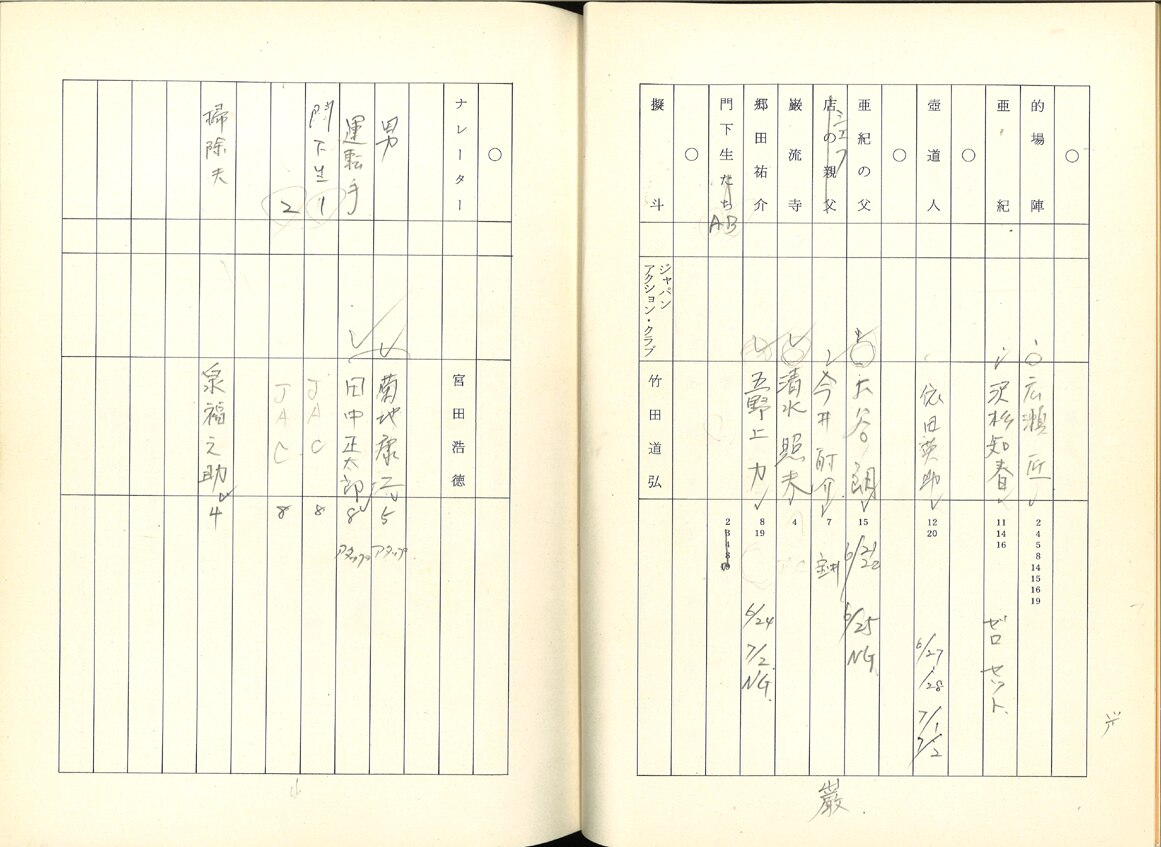 ○
的場陣
広瀬匠
2 4 5 8 14 15 16 19
亜紀
沢杉知春
11 14 16
ゼロセット
○
壺道人
依田英助
12 20
6/27 /28 7/1 7/2
○
亜紀の父
大谷朗
15
6/21 22 6/25 NG
店の親父
シェフ
今井耐介
7
巌流寺
清水照夫
4
郷田祐介
五野上力
8 19
6/24 7/2 NG
門下生たち
AB
2 3 4 8
○
擬斗
ジャパンアクション・クラブ
竹田道弘
巌
○
ナレーター
宮田浩徳
男
菊地康二
5
アタック
運転手
田中正太郎
8
アタック
門下生 1
JAC
8
2
JAC
8
掃除夫
泉福之助
4